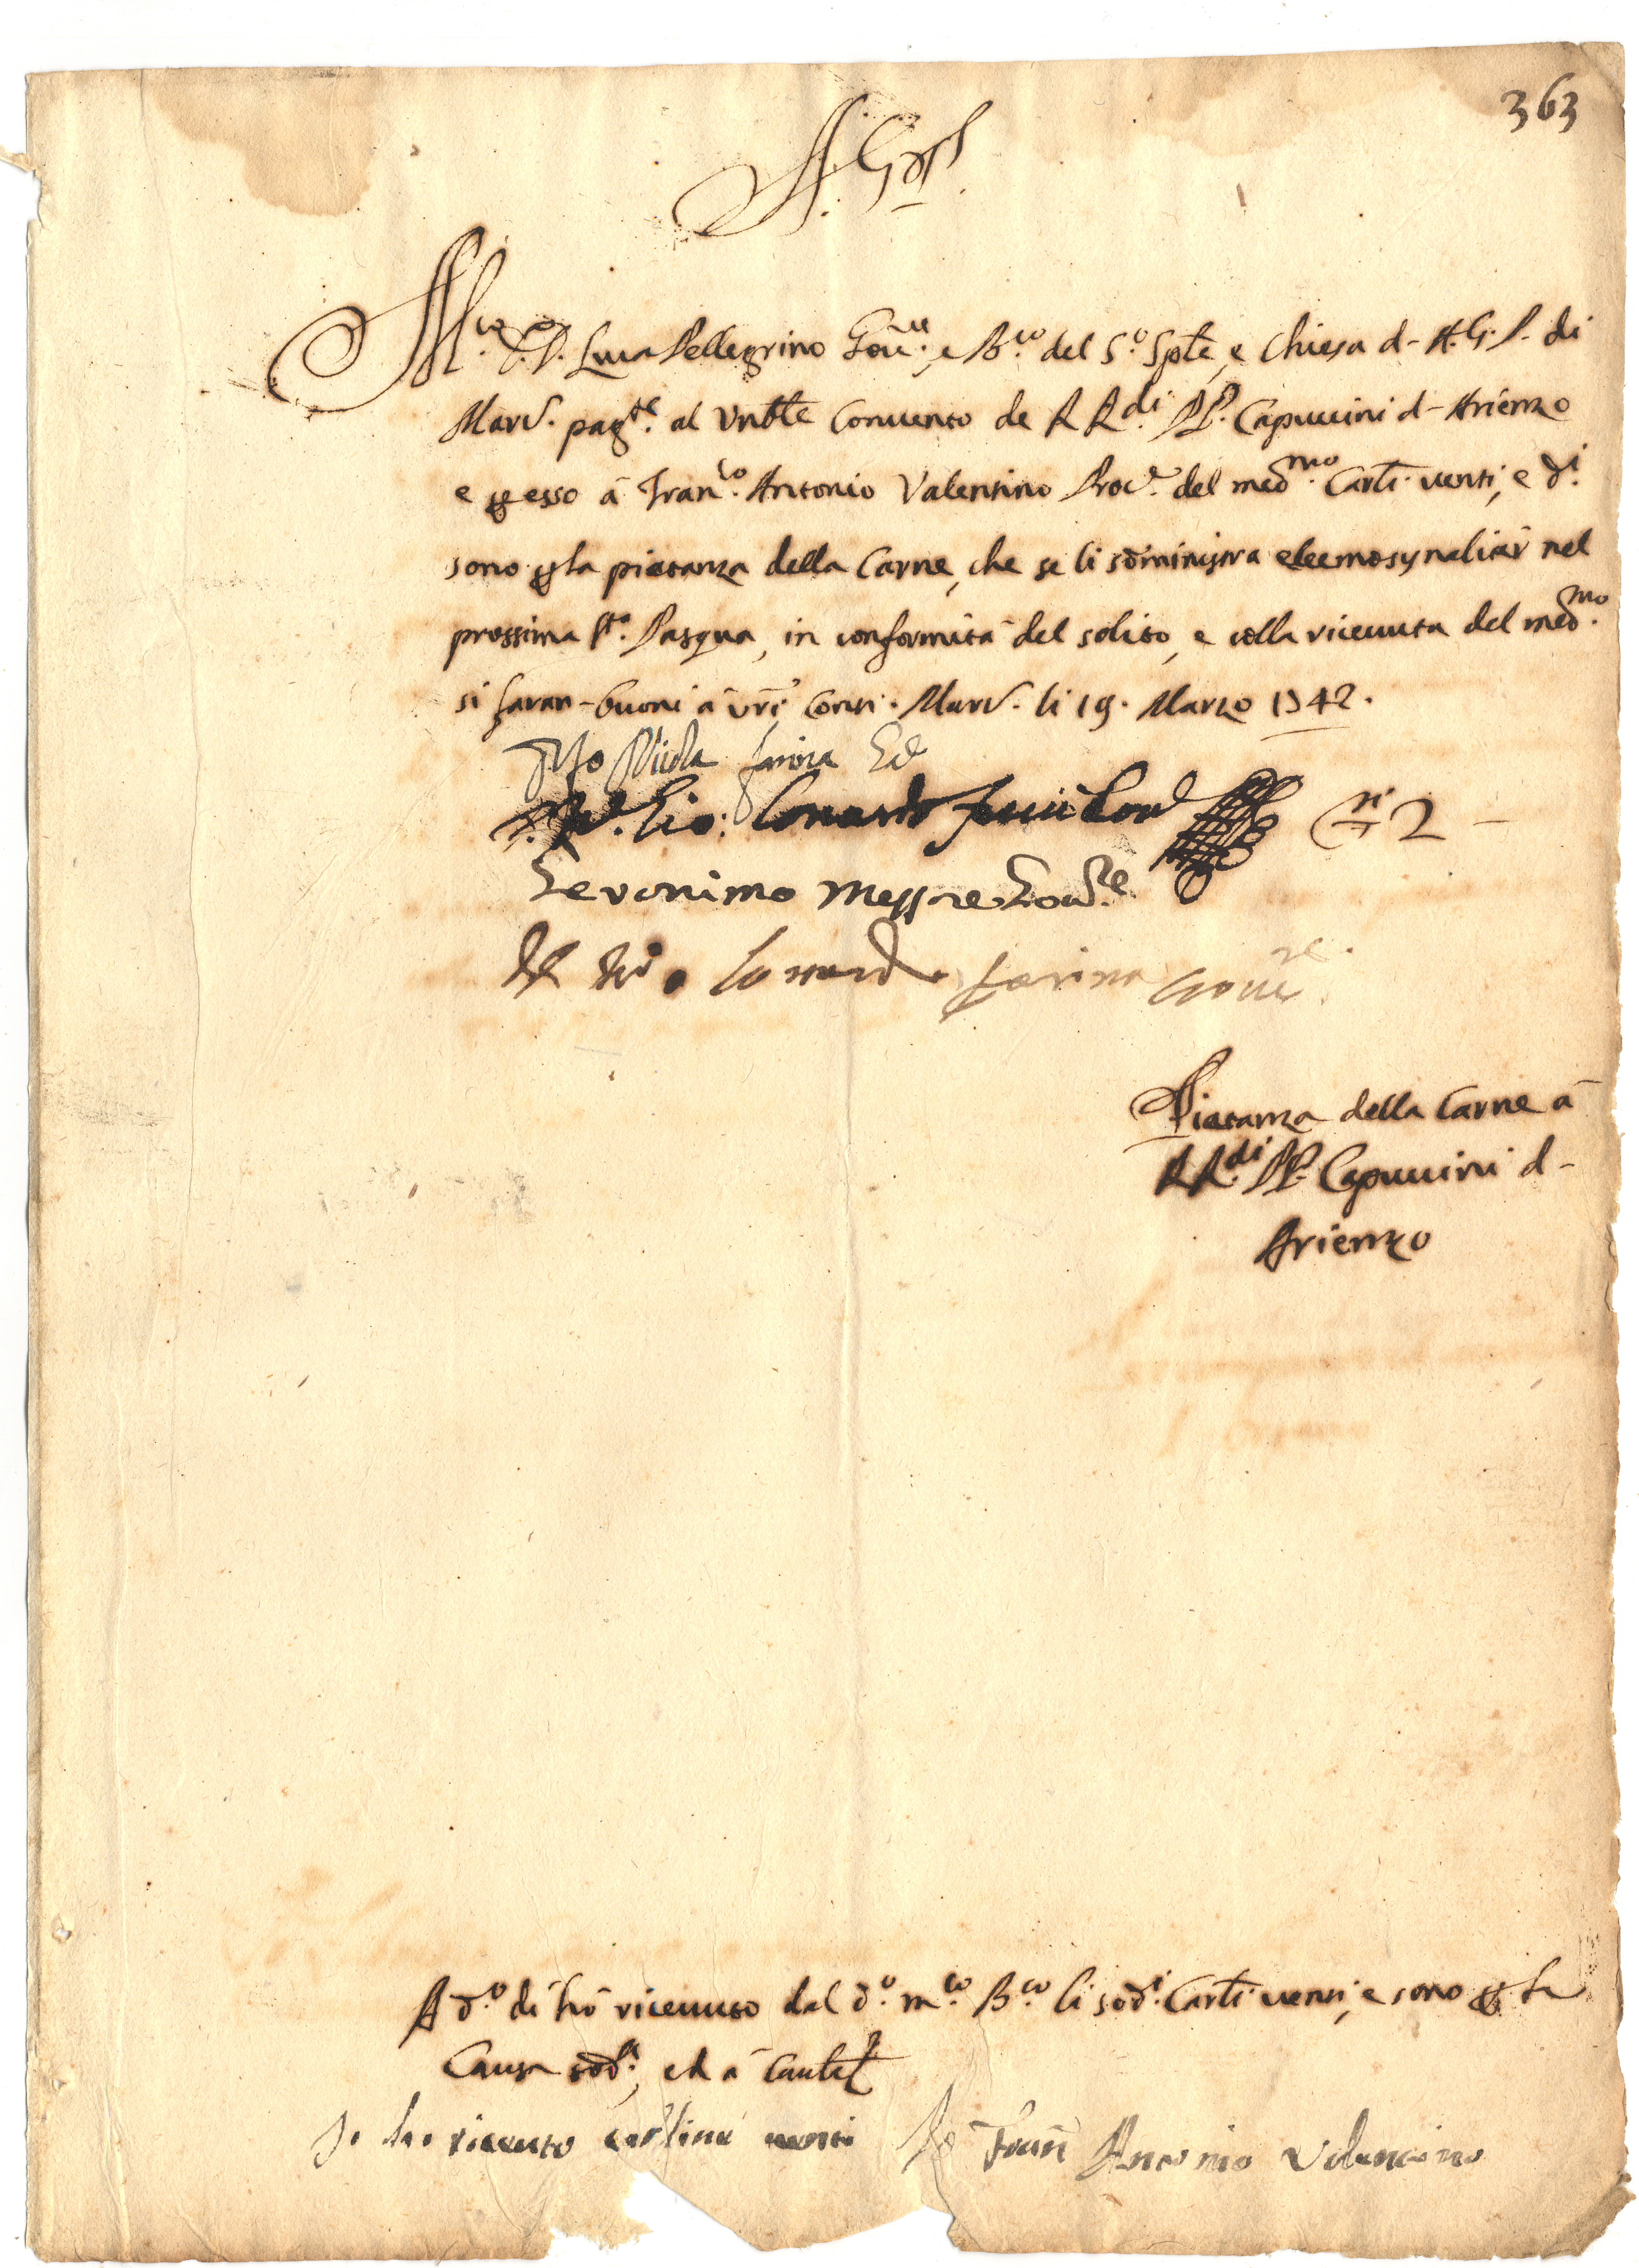 363
A. G. P.
M.co S.r D. Luca Pellegrino Gov.re, e B.co del S.o Sple, e Chiesa d- A. G. P. di
Mard. pag.te al Vnble Convento de RR.di PP. Capuccini d- Arienzo
e p esso à Fran.co Antonio Valentino Proc.r del med.mo Carli venti, e d.i
sono p la pietanza della Carne, che se li somministra eleemosynaliter nel
prossima S.ta Pasqua, in conformità del solito, e colla ricevuta del med.mo
si faran- buoni à vri Conti. Mard. li 19. Marzo 1742.
Io Nicola farina
Gio: Lonardo
2 -
Geronimo Messore Gov.re
Lonardo farina Gov.re
Pietanza della Carne à
RR.di PP. Capuccini d-
Arienzo
A d.o di hò ricevuto dal d.o m.co B.co li sod.i Carli venti, e sono p la
Causa sod.a, ed à cautel
Io ho riceuto carlini venti Io Fran Antonio Valentino